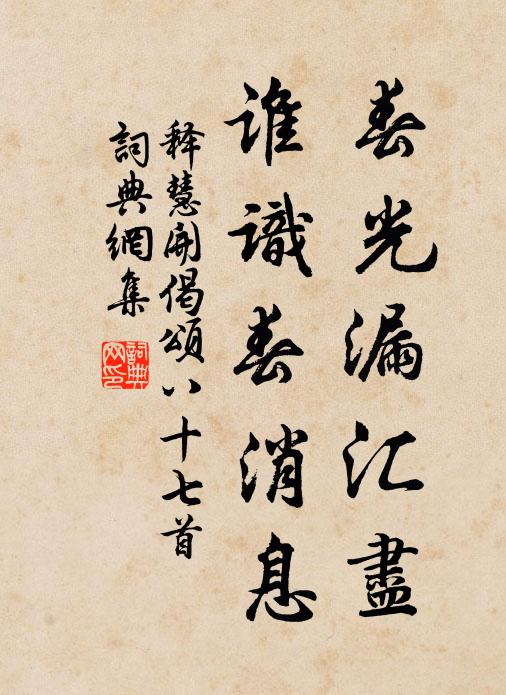 春光漏汇盡
谁識春消息
释慧开偈頌八十七首
詞典網集
詞典网印